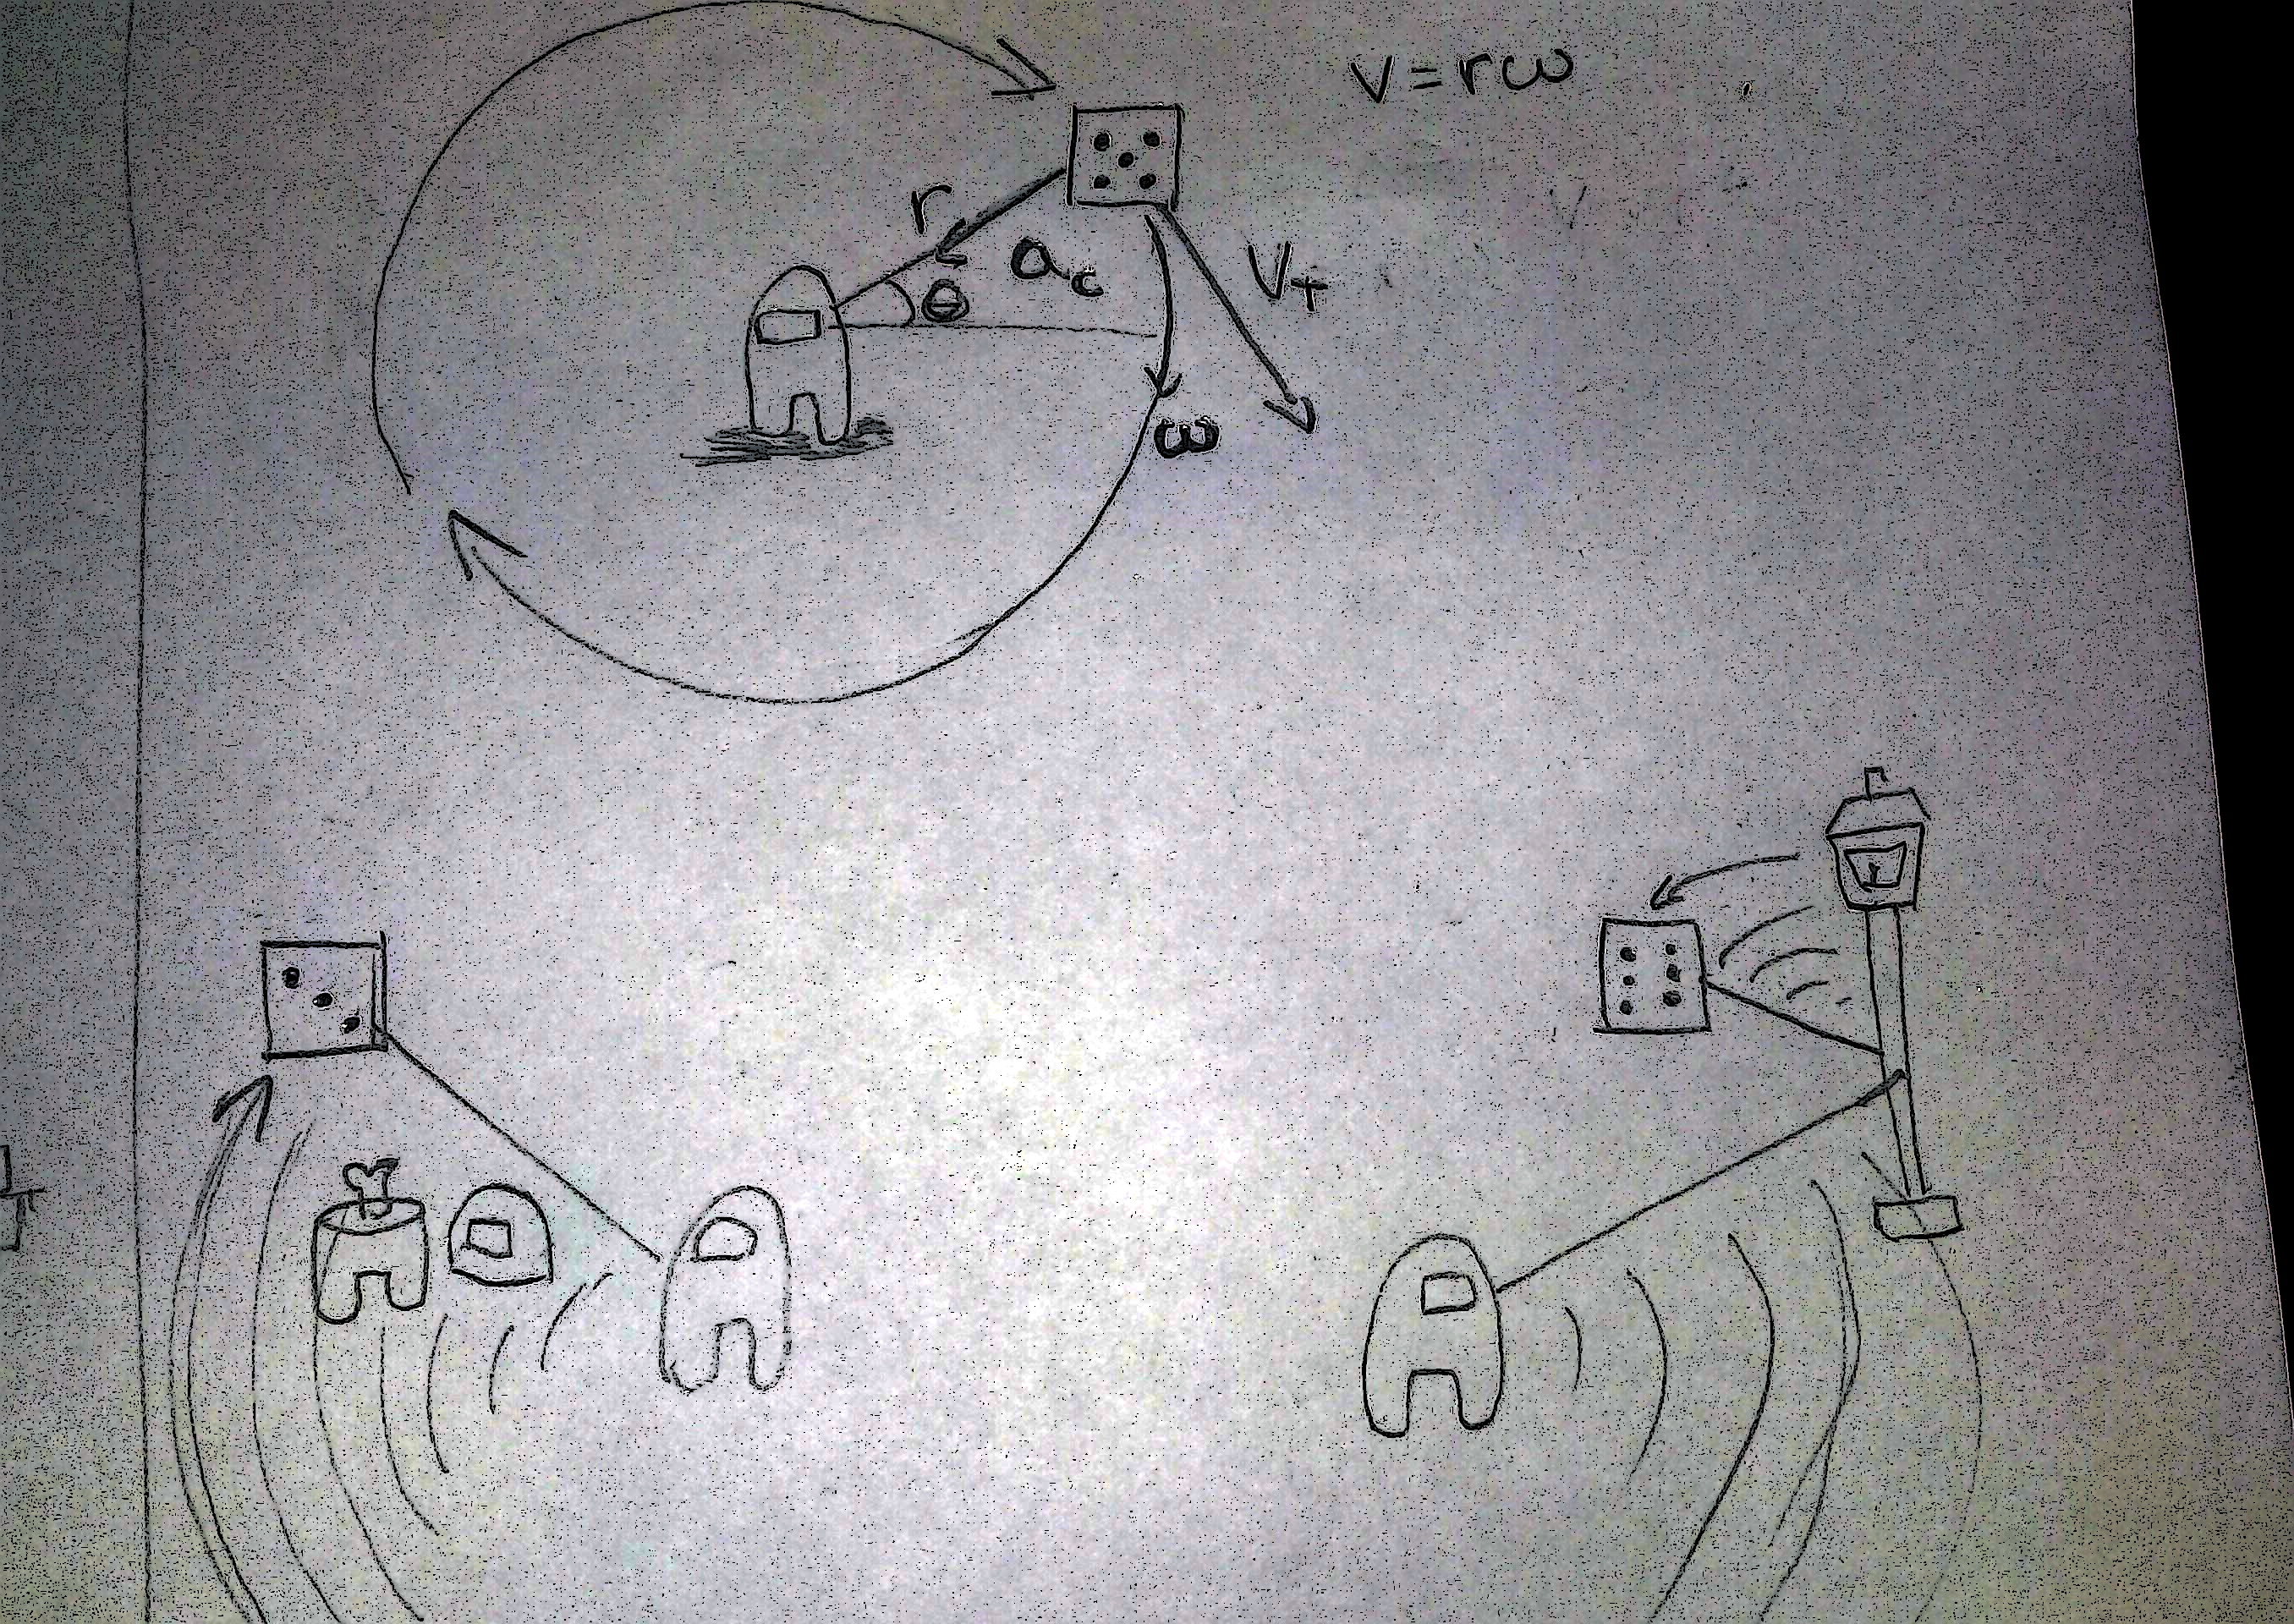 v = rω
r
a_c
θ
V_T
ω